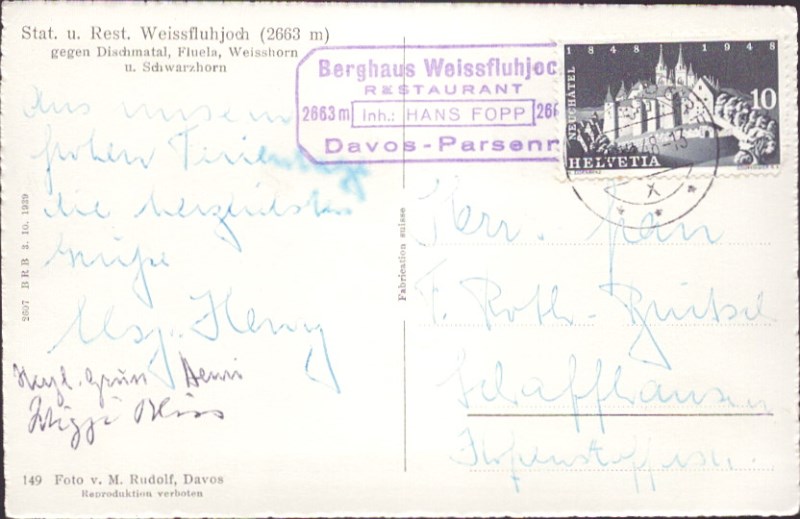 Stat. u. Rest. Weissfluhjoch (2663 m)
gegen Dischmatal, Fluela, Weisshorn
u. Schwarzhorn
Berghaus Weissfluhjoc
RESTAURANT
2663 m Inh.: HANS FOPP 266
Davos-Parsenn
1848 1948
NEUCHÂTEL
10
HELVETIA
48-13
X
Aus unsern
frohen Ferientage
die herzlichsten
Grüsse
Henry
Herzl. Grüss Henri
2697 BRB 3. 10. 1939
Fabrication suisse
Herr
F. Roth-Bütsel
Schaffhausen
149 Foto v. M. Rudolf, Davos
Reproduktion verboten